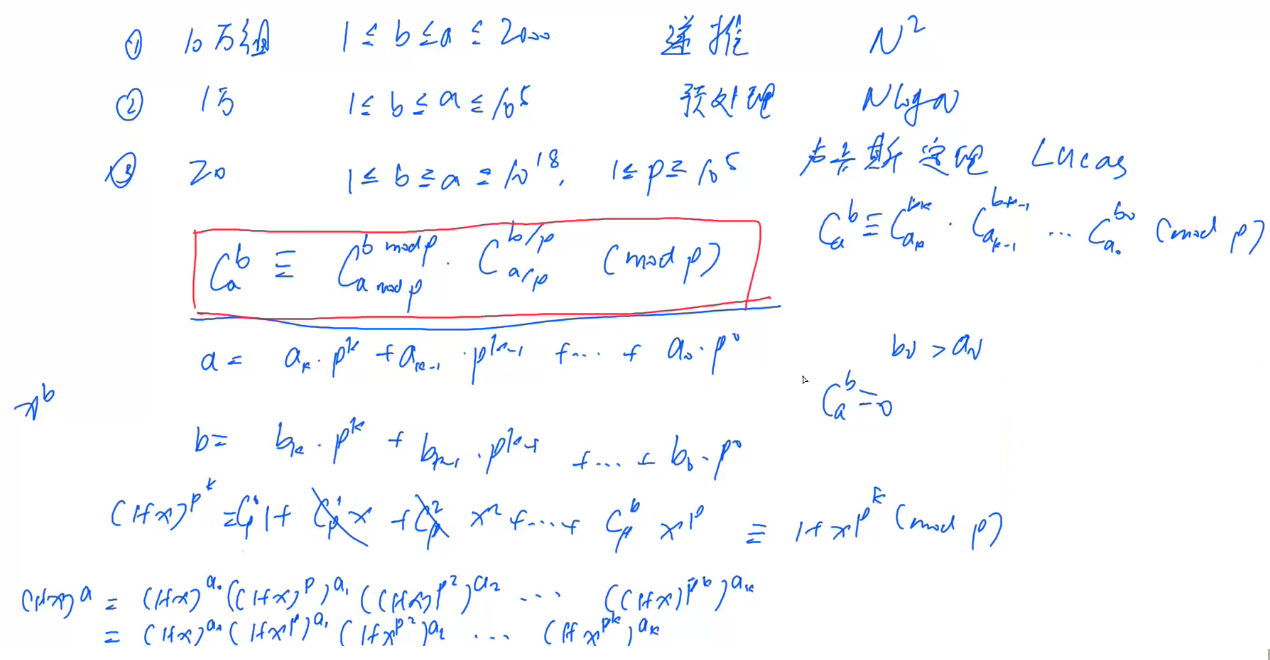 ① 10万组 1 ≤ b ≤ a ≤ 2000 递推 N²
② 1万 1 ≤ b ≤ a ≤ 10⁵ 预处理 NlogN
③ 20 1 ≤ b ≤ a ≤ 10¹⁸, 1 ≤ p ≤ 10⁵ 卢卡斯定理 Lucas
C_a^b ≡ C_{a_k}^{b_k} · C_{a_{k-1}}^{b_{k-1}} ... C_{a_0}^{b_0} (mod p)
C_a^b ≡ C_{a mod p}^{b mod p} · C_{a/p}^{b/p} (mod p)
a = a_k · p^k + a_{k-1} · p^{k-1} + ... + a_0 · p^0
b_0 > a_0
x^b
C_a^b = 0
b = b_k · p^k + b_{k-1} · p^{k-1} + ... + b_0 · p^0
(1+x)^{p^k} = 1 + C_p^1 x + C_p^2 x² + ... + x^p ≡ 1 + x^{p^k} (mod p)
(1+x)^a = (1+x)^{a_0} ((1+x)^p)^{a_1} ((1+x)^{p^2})^{a_2} ... ((1+x)^{p^k})^{a_k}
= (1+x)^{a_0} (1+x^p)^{a_1} (1+x^{p^2})^{a_2} ... (1+x^{p^k})^{a_k}